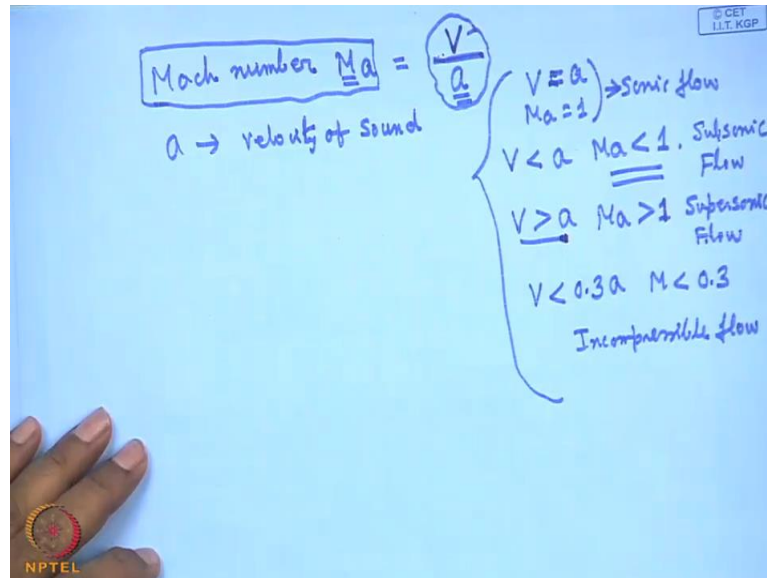 © CET
I.I.T. KGP
Mach number Ma = V/a
a → velocity of sound
V = a
Ma = 1
→ Sonic flow
V < a Ma < 1. Subsonic
Flow
V > a Ma > 1 Supersonic
Flow
V < 0.3a M < 0.3
Incompressible flow
NPTEL